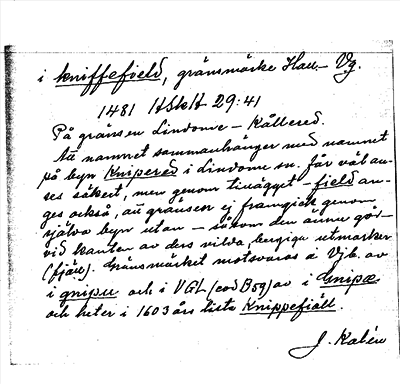 i kniffefield, gränsmärke Hall.- Vg.
1481 HSkH 29:41
På gränsen Lindome - Kållered.
Att namnet sammanhänger med namnet
på byn Knipered i Lindome sn. får väl an-
ses säkert, men genom tillägget -field an-
ges också, att gränsen ej framgick genom
själva byn utan - såsom den ännu gör -
vid kanten av dess vilda, bergiga utmarker
(fjäll). Gränsmärket motsvaras å Vg. av
i gnipu och i VGL (cod B 59) av i Gnipæ
och heter i 1603 års lista Knippefiäll.
J. Kalén